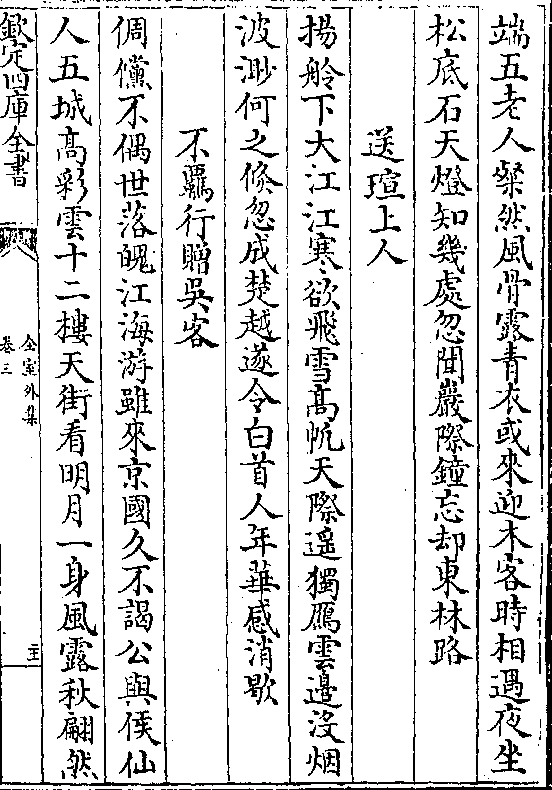 端五老人粲然風骨露青衣或來迎木客時相遇夜坐
松底石天燈知幾處忽聞巖際鐘忘却東林路
送瑄上人
揚舲下大江江寒欲飛雪髙帆天際遥獨鴈雲邉没烟
波渺何之倐忽成楚越遂令白首人年華感消歇
不羈行贈吳客
倜儻不偶世落魄江海游雖來京國久不謁公與侯仙
人五城髙彩雲十二樓天街看明月一身風露秋翩然
欽定四庫全書
全室外集
卷三